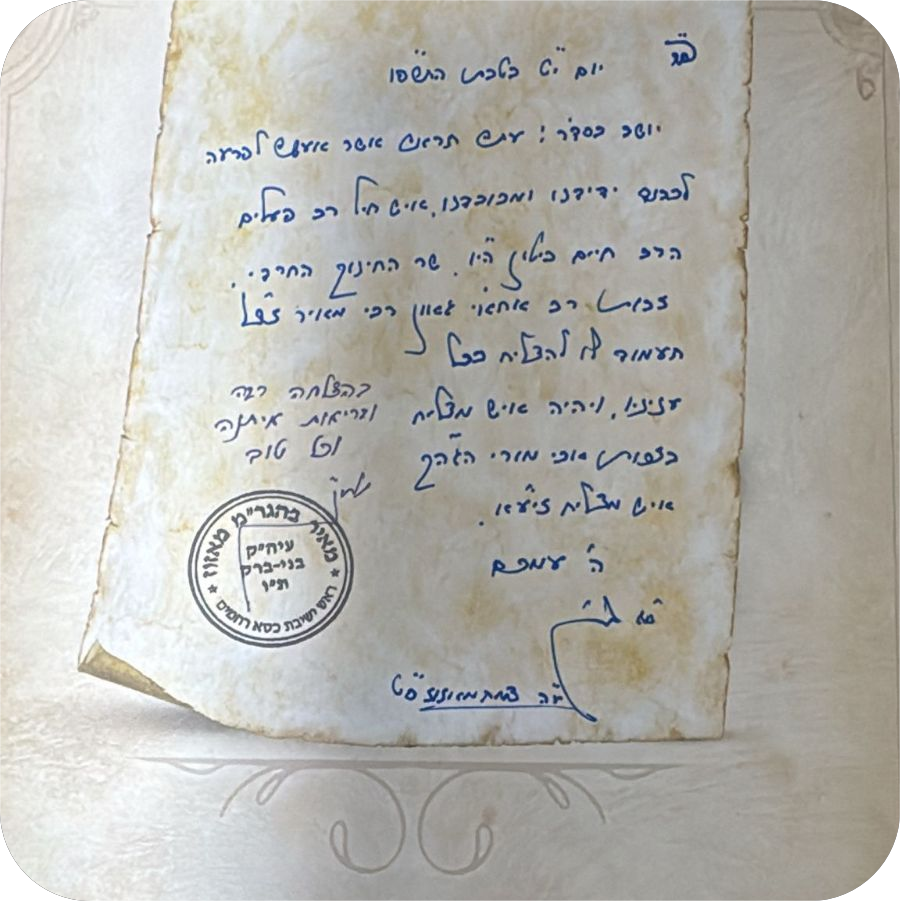 בס"ד
יום י"ט בטבת התשפ"ו
יושב בסדר: עתה תראה אשר אעשה לפרעה
לכבוד ידידנו ומכובדנו, איש חיל רב פעלים
הרב חיים ביטון הי"ו, שר החינוך החרדי.
זכות רב אחאי גאון רבי מאיר זצ"ל
תעמוד לו להצליח בכל
ענייניו, ויהיה איש מצליח
כצפות אבי מורי הגה"ק
איש מצליח זיע"א.
ה' עמכם
ע"ה צמח מאזוז ס"ט
בהצלחה רבה
ובריאות איתנה
וכל טוב
מאיר בהגר"מ מאזוז
עיה"ק
בני-ברק
ת"ו
ראש ישיבת כסא רחמים